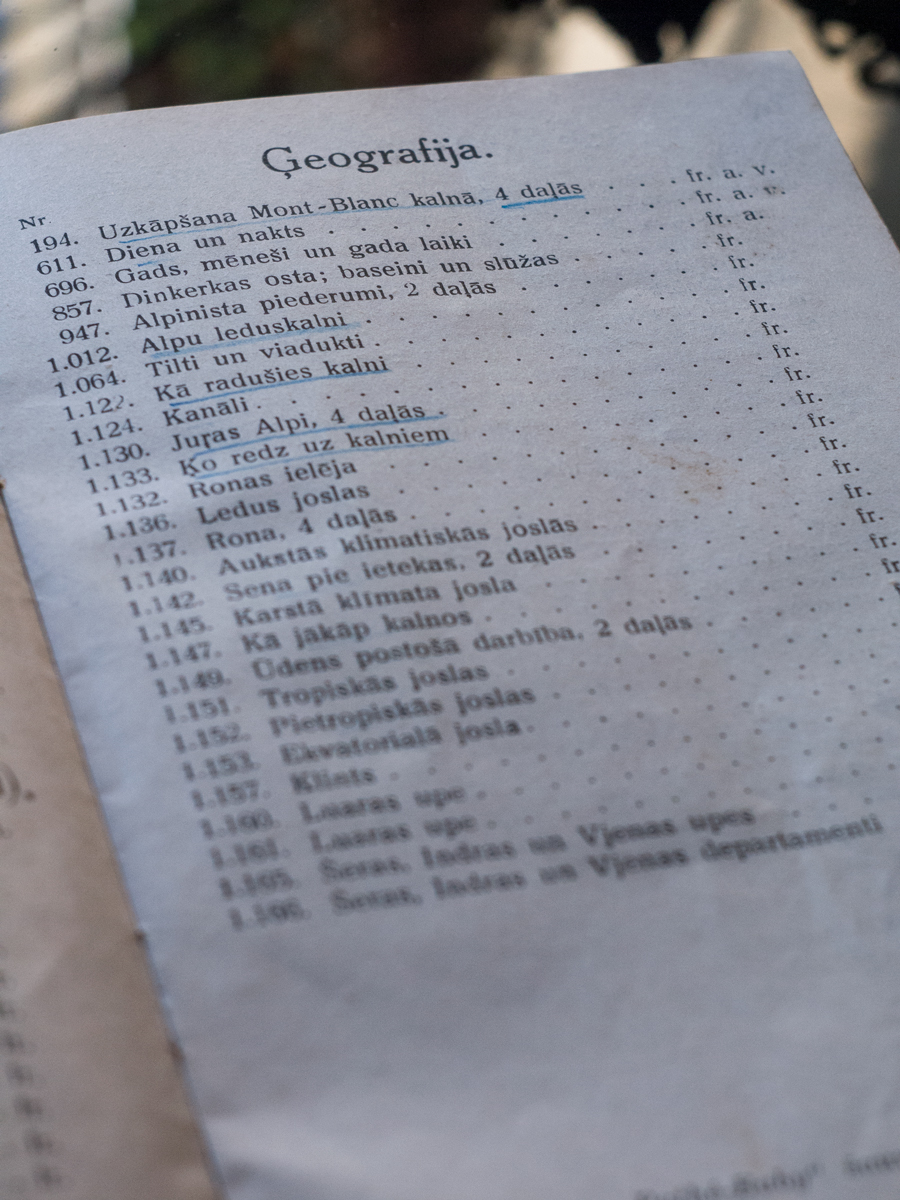 Ģeografija.
Nr.
194. Uzkāpšana Mont-Blanc kalnā, 4 daļās . . . . fr. a. v.
611. Diena un nakts . . . . . . . . . . fr. a. v.
696. Gads, mēneši un gada laiki . . . . . . fr. a.
857. Dinkerkas osta; baseini un slūžas . . . . . fr.
947. Alpinista piederumi, 2 daļās . . . . . . fr.
1.012. Alpu leduskalni . . . . . . . . . . fr.
1.064. Tilti un viadukti . . . . . . . . . . fr.
1.122. Kā radušies kalni . . . . . . . . . . fr.
1.124. Kanāli . . . . . . . . . . . . . fr.
1.130. Juŗas Alpi, 4 daļās . . . . . . . . . fr.
1.133. Ko redz uz kalniem . . . . . . . . . fr.
1.132. Ronas ielēja . . . . . . . . . . . fr.
1.136. Ledus joslas . . . . . . . . . . . fr.
1.137. Rona, 4 daļās . . . . . . . . . . . fr.
1.140. Aukstās klimatiskās joslās . . . . . . . fr.
1.142. Sena pie ietekas, 2 daļās . . . . . . . fr.
1.145. Karstā klimata josla . . . . . . . . . fr.
1.147. Kā jākāp kalnos . . . . . . . . . . fr
1.149. Ūdens postošā darbība, 2 daļās . . . . .
1.151. Tropiskās joslas . . . . . . . . . .
1.152. Pietropiskās joslas . . . . . . . . .
1.153. Ekvatorialā josla . . . . . . . . . .
1.157. Klints . . . . . . . . . . . . .
1.160. Luaras upe . . . . . . . . . . .
1.161. Luaras upe . . . . . . . . . . .
1.165. Šeras, Indras un Vjenas upes . . . . .
Šeras, Indras un Vjenas departamenti